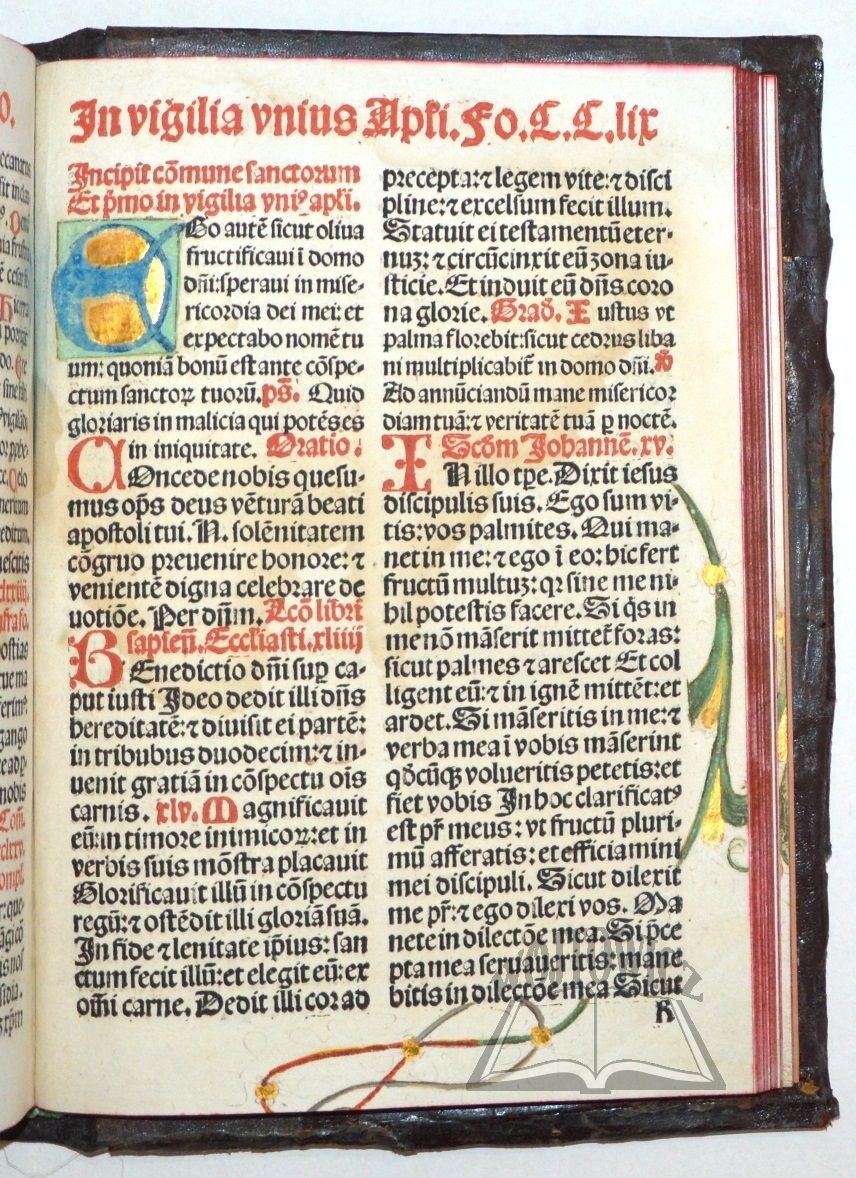 In vigilia vnius Apłi. Fo. C. C. lix
Incipit cōmune sanctorum
Et p̄mo in vigilia vniꝰ apłi.
EGo autē sicut oliua
fructificaui ī domo
dn̄i: speraui in mise-
ricordia dei mei: et
expectabo nomē tu
um: quoniā bonū est ante cōspe-
ctum sanctoꝝ tuorū. ps̄. Quid
gloriaris in malicia qui potēs es
in iniquitate. Oratio.
COncede nobis quesu-
mus op̄s deus vēturā beati
apostoli tui. N. solēnitatem
cōgruo preuenire honore: ⁊
venientē digna celebrare de
uotiōe. Per dn̄m. Lcō libri
sapień. Eccłiasti. xliiij
BEnedictio dn̄i suꝑ ca-
put iusti Ideo dedit illi dn̄s
hereditatē: ⁊ diuisit ei partē:
in tribubus duodecim: ⁊ in-
uenit gratiā in cōspectu oīs
carnis. xlv. Magnificauit
eū: in timore inimicoꝝ: et in
verbis suis mōstra placauit
Glorificauit illū in cōspectu
regū: ⁊ ostēdit illi gloriā suā.
In fide ⁊ lenitate ip̄ius: san
ctum fecit illū: et elegit eū: ex
om̄i carne. Dedit illi cor ad
precepta: ⁊ legem vite: ⁊ disci
pline: ⁊ excelsum fecit illum.
Statuit ei testamentū eter-
nuꝫ: ⁊ circūcinxit eū zona iu-
sticie. Et induit eū dn̄s coro
na glorie. Grad̄. Iustus vt
palma florebit: sicut cedrus liba
ni multiplicabit̄ in domo dn̄i. ꝟ
Ad annūciandū mane misericor
diam tuā: ⁊ veritatē tuā ꝑ noctē.
Scd̄m Johannē. xv.
IN illo tp̄e. Dixit iesus
discipulis suis. Ego sum vi-
tis: vos palmites. Qui ma-
net in me: ⁊ ego ī eo: hic fert
fructū multuꝫ: qꝛ sine me ni-
hil potestis facere. Si q̄s in
me nō māserit mittet̄ foras:
sicut palmes ⁊ arescet Et col
ligent eū: ⁊ in ignē mittēt: et
ardet. Si māseritis in me: ⁊
verba mea ī vobis māserint
qd̄cūqꝫ volueritis petetis: et
fiet vobis In hoc clarificatꝰ
est pr̄ meus: vt fructū pluri-
mū afferatis: et efficiamini
mei discipuli. Sicut dilexit
me pr̄: ⁊ ego dilexi vos. Ma
nete in dilectōe mea. Si p̄ce
pta mea seruaueritis: mane
bitis in dilectōe mea Sicut